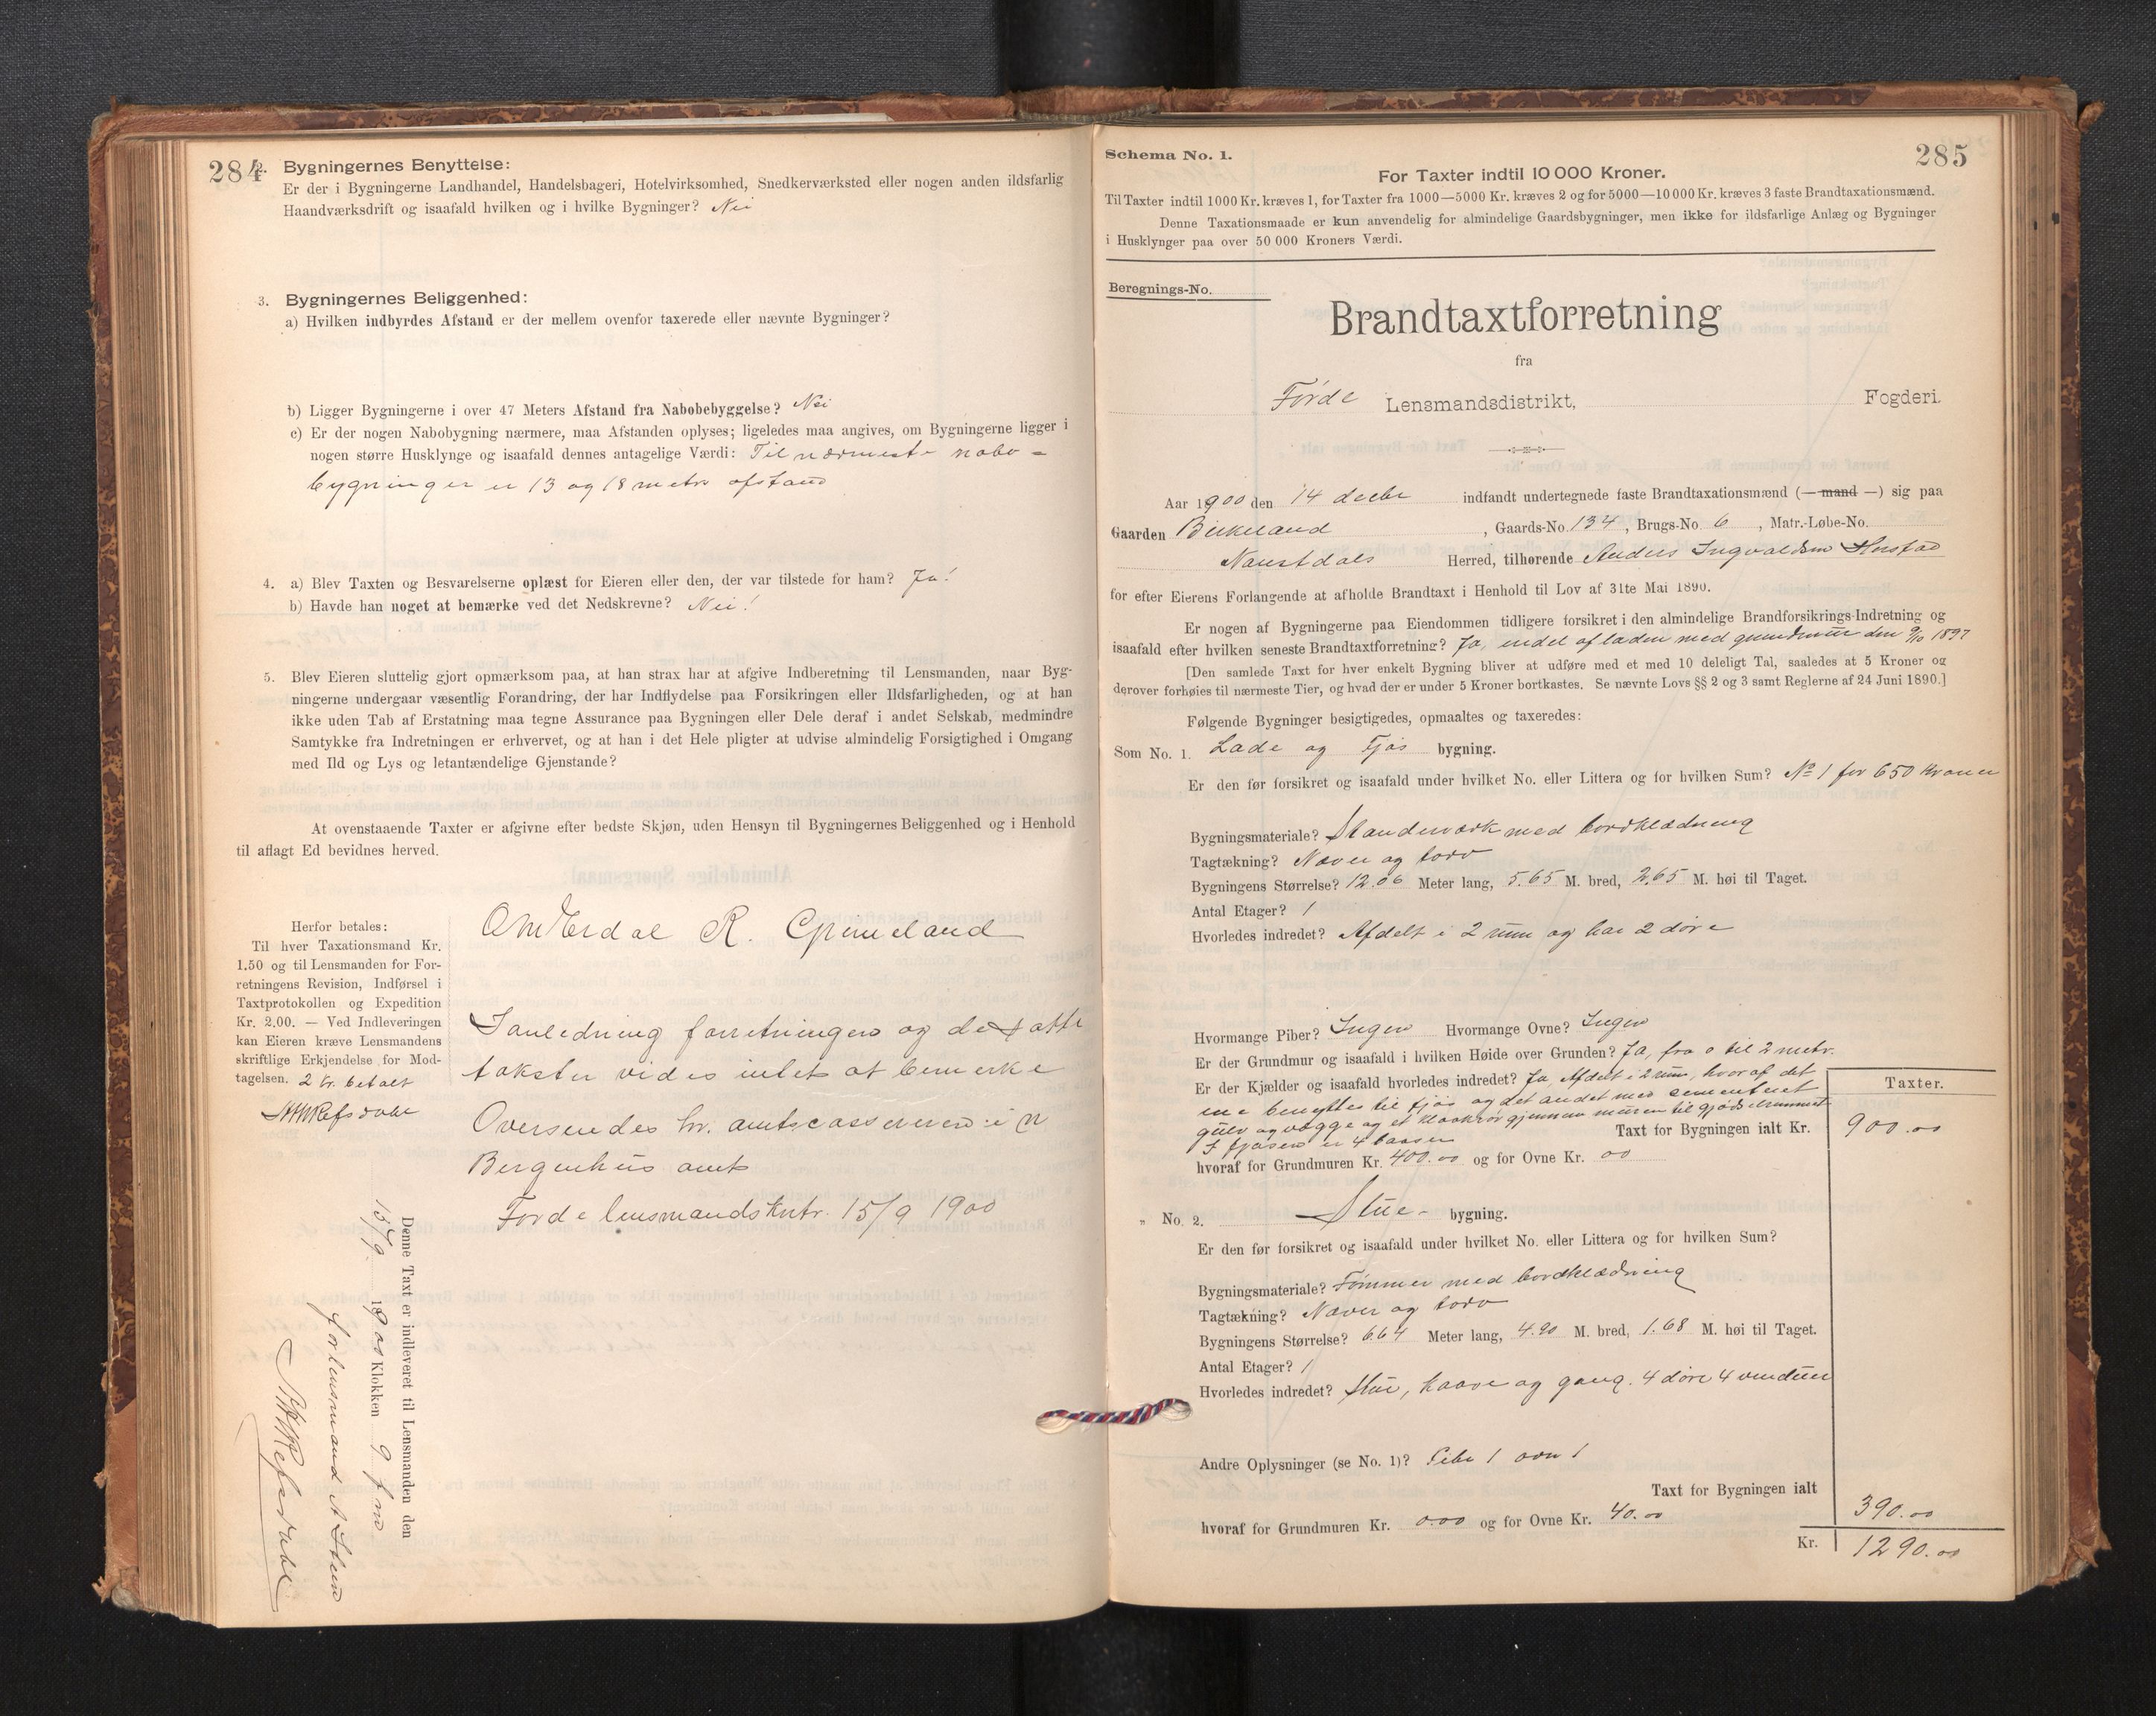 284
2. Bygningernes Benyttelse:
Er der i Bygningerne Landhandel, Handelsbageri, Hotelvirksomhed, Snedkerværksted eller nogen anden ildsfarlig
Haandværksdrift og isaafald hvilken og i hvilke Bygninger? Nei
3. Bygningernes Beliggenhed:
a) Hvilken indbyrdes Afstand er der mellem ovenfor taxerede eller nævnte Bygninger?
b) Ligger Bygningerne i over 47 Meters Afstand fra Nabobebyggelse? Nei
c) Er der nogen Nabobygning nærmere, maa Afstanden oplyses; ligeledes maa angives, om Bygningerne ligger i
nogen større Husklynge og isaafald dennes antagelige Værdi: Til nærmeste nabo-
bygninger er 13 og 18 metr afstand
4. a) Blev Taxten og Besvarelserne oplæst for Eieren eller den, der var tilstede for ham? Ja!
b) Havde han noget at bemærke ved det Nedskrevne? Nei!
5. Blev Eieren sluttelig gjort opmærksom paa, at han strax har at afgive Indberetning til Lensmanden, naar Byg-
ningerne undergaar væsentlig Forandring, der har Indflydelse paa Forsikringen eller Ildsfarligheden, og at han
ikke uden Tab af Erstatning maa tegne Assurance paa Bygningen eller Dele deraf i andet Selskab, medmindre
Samtykke fra Indretningen er erhvervet, og at han i det Hele pligter at udvise almindelig Forsigtighed i Omgang
med Ild og Lys og letantændelige Gjenstande?
At ovenstaaende Taxter er afgivne efter bedste Skjøn, uden Hensyn til Bygningernes Beliggenhed og i Henhold
til aflagt Ed bevidnes herved.
Erdal R. Grimeland
Herfor betales:
Til hver Taxationsmand Kr.
1.50 og til Lensmanden for For-
retningens Revision, Indførsel i
Taxtprotokollen og Expedition
Kr. 2.00. — Ved Indleveringen
kan Eieren kræve Lensmandens
skriftlige Erkjendelse for Mod-
tagelsen. 2 kr. betalt
Refsdahl
I anledning forretningen og de satte
takster vides intet at bemerke
Oversendes hr. amtscassereren i N
Bergenhus amt
Førde lensmandskntr. 15/9 1900
Denne Taxt er indleveret til Lensmanden den
15/9 1900 Klokken 9 fm
for lensmand
Refsdahl
285
Schema No. 1.
For Taxter indtil 10 000 Kroner.
Til Taxter indtil 1000 Kr. kræves 1, for Taxter fra 1000—5000 Kr. kræves 2 og for 5000—10 000 Kr. kræves 3 faste Brandtaxationsmænd.
Denne Taxationsmaade er kun anvendelig for almindelige Gaardsbygninger, men ikke for ildsfarlige Anlæg og Bygninger
i Husklynger paa over 50 000 Kroners Værdi.
Beregnings-No.
Brandtaxtforretning
fra
Førde Lensmandsdistrikt, Fogderi.
Aar 1900 den 14 decbr indfandt undertegnede faste Brandtaxationsmænd (— mand —) sig paa
Gaarden Birkeland, Gaards-No. 134, Brugs-No. 6, Matr.-Løbe-No.
Naustdals Herred, tilhørende Anders Ingvaldsen
for efter Eierens Forlangende at afholde Brandtaxt i Henhold til Lov af 31te Mai 1890.
Er nogen af Bygningerne paa Eiendommen tidligere forsikret i den almindelige Brandforsikrings-Indretning og
isaafald efter hvilken seneste Brandtaxtforretning? Ja, endel af laden med grundmur den 9/10 1897
[Den samlede Taxt for hver enkelt Bygning bliver at udføre med et med 10 deleligt Tal, saaledes at 5 Kroner og
derover forhøies til nærmeste Tier, og hvad der er under 5 Kroner bortkastes. Se nævnte Lovs §§ 2 og 3 samt Reglerne af 24 Juni 1890.]
Følgende Bygninger besigtigedes, opmaaltes og taxeredes:
Som No. 1. Lade og Fjøs bygning.
Er den før forsikret og isaafald under hvilket No. eller Littera og for hvilken Sum? No 1 for 650 kroner
Bygningsmateriale? Standerværk med bordklædning
Tagtækning? Næver og torv
Bygningens Størrelse? 12.06 Meter lang, 5.65 M. bred, 2.65 M. høi til Taget.
Antal Etager? 1
Hvorledes indredet? Afdelt i 2 rum og har 2 døre
Hvormange Piber? Ingen Hvormange Ovne? Ingen
Er der Grundmur og isaafald i hvilken Høide over Grunden? Ja, fra 0 til 2 metr.
Er der Kjælder og isaafald hvorledes indredet? Ja, Afdelt i 2 rum, hvoraf det
ene benyttes til fjøs og det andet med cementeret
gulv og vægge og et kloakrør gjennem muren til gjødselrummet
I fjøsen er 4 baaser
Taxter.
Taxt for Bygningen ialt Kr. 900.00
hvoraf for Grundmuren Kr. 400.00 og for Ovne Kr. 00
„ No. 2. Stue- bygning.
Er den før forsikret og isaafald under hvilket No. eller Littera og for hvilken Sum?
Bygningsmateriale? Tømmer med bordklædning
Tagtækning? Næver og torv
Bygningens Størrelse? 6.64 Meter lang, 4.90 M. bred, 1.68 M. høi til Taget.
Antal Etager? 1
Hvorledes indredet? Stue, kaave og gang. 4 døre 4 vinduer
Andre Oplysninger (se No. 1)? Pibe 1 ovn 1
Taxt for Bygningen ialt 390.00
hvoraf for Grundmuren Kr. 0.00 og for Ovne Kr. 40.00
Kr. 1290.00